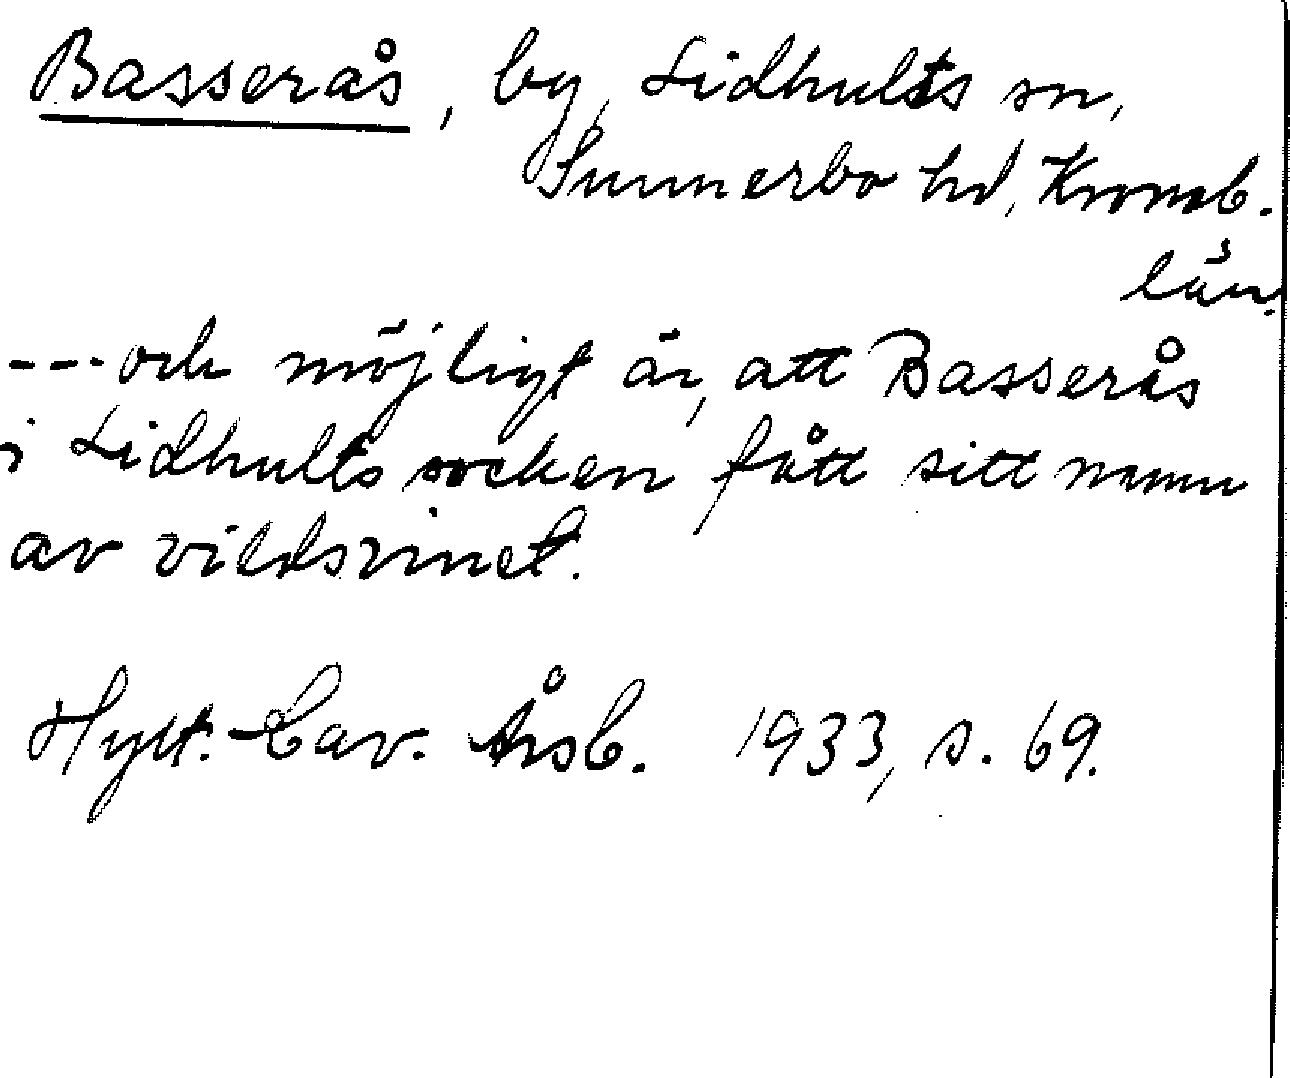 Basserås, by, Lidhults sn,
Sunnerbo hd, Kronob.
län.
---och möjligt är, att Basserås
i Lidhults socken fått sitt namn
av vildsvinet.
Hylt.-Cav. Årsb. 1933, s. 69.